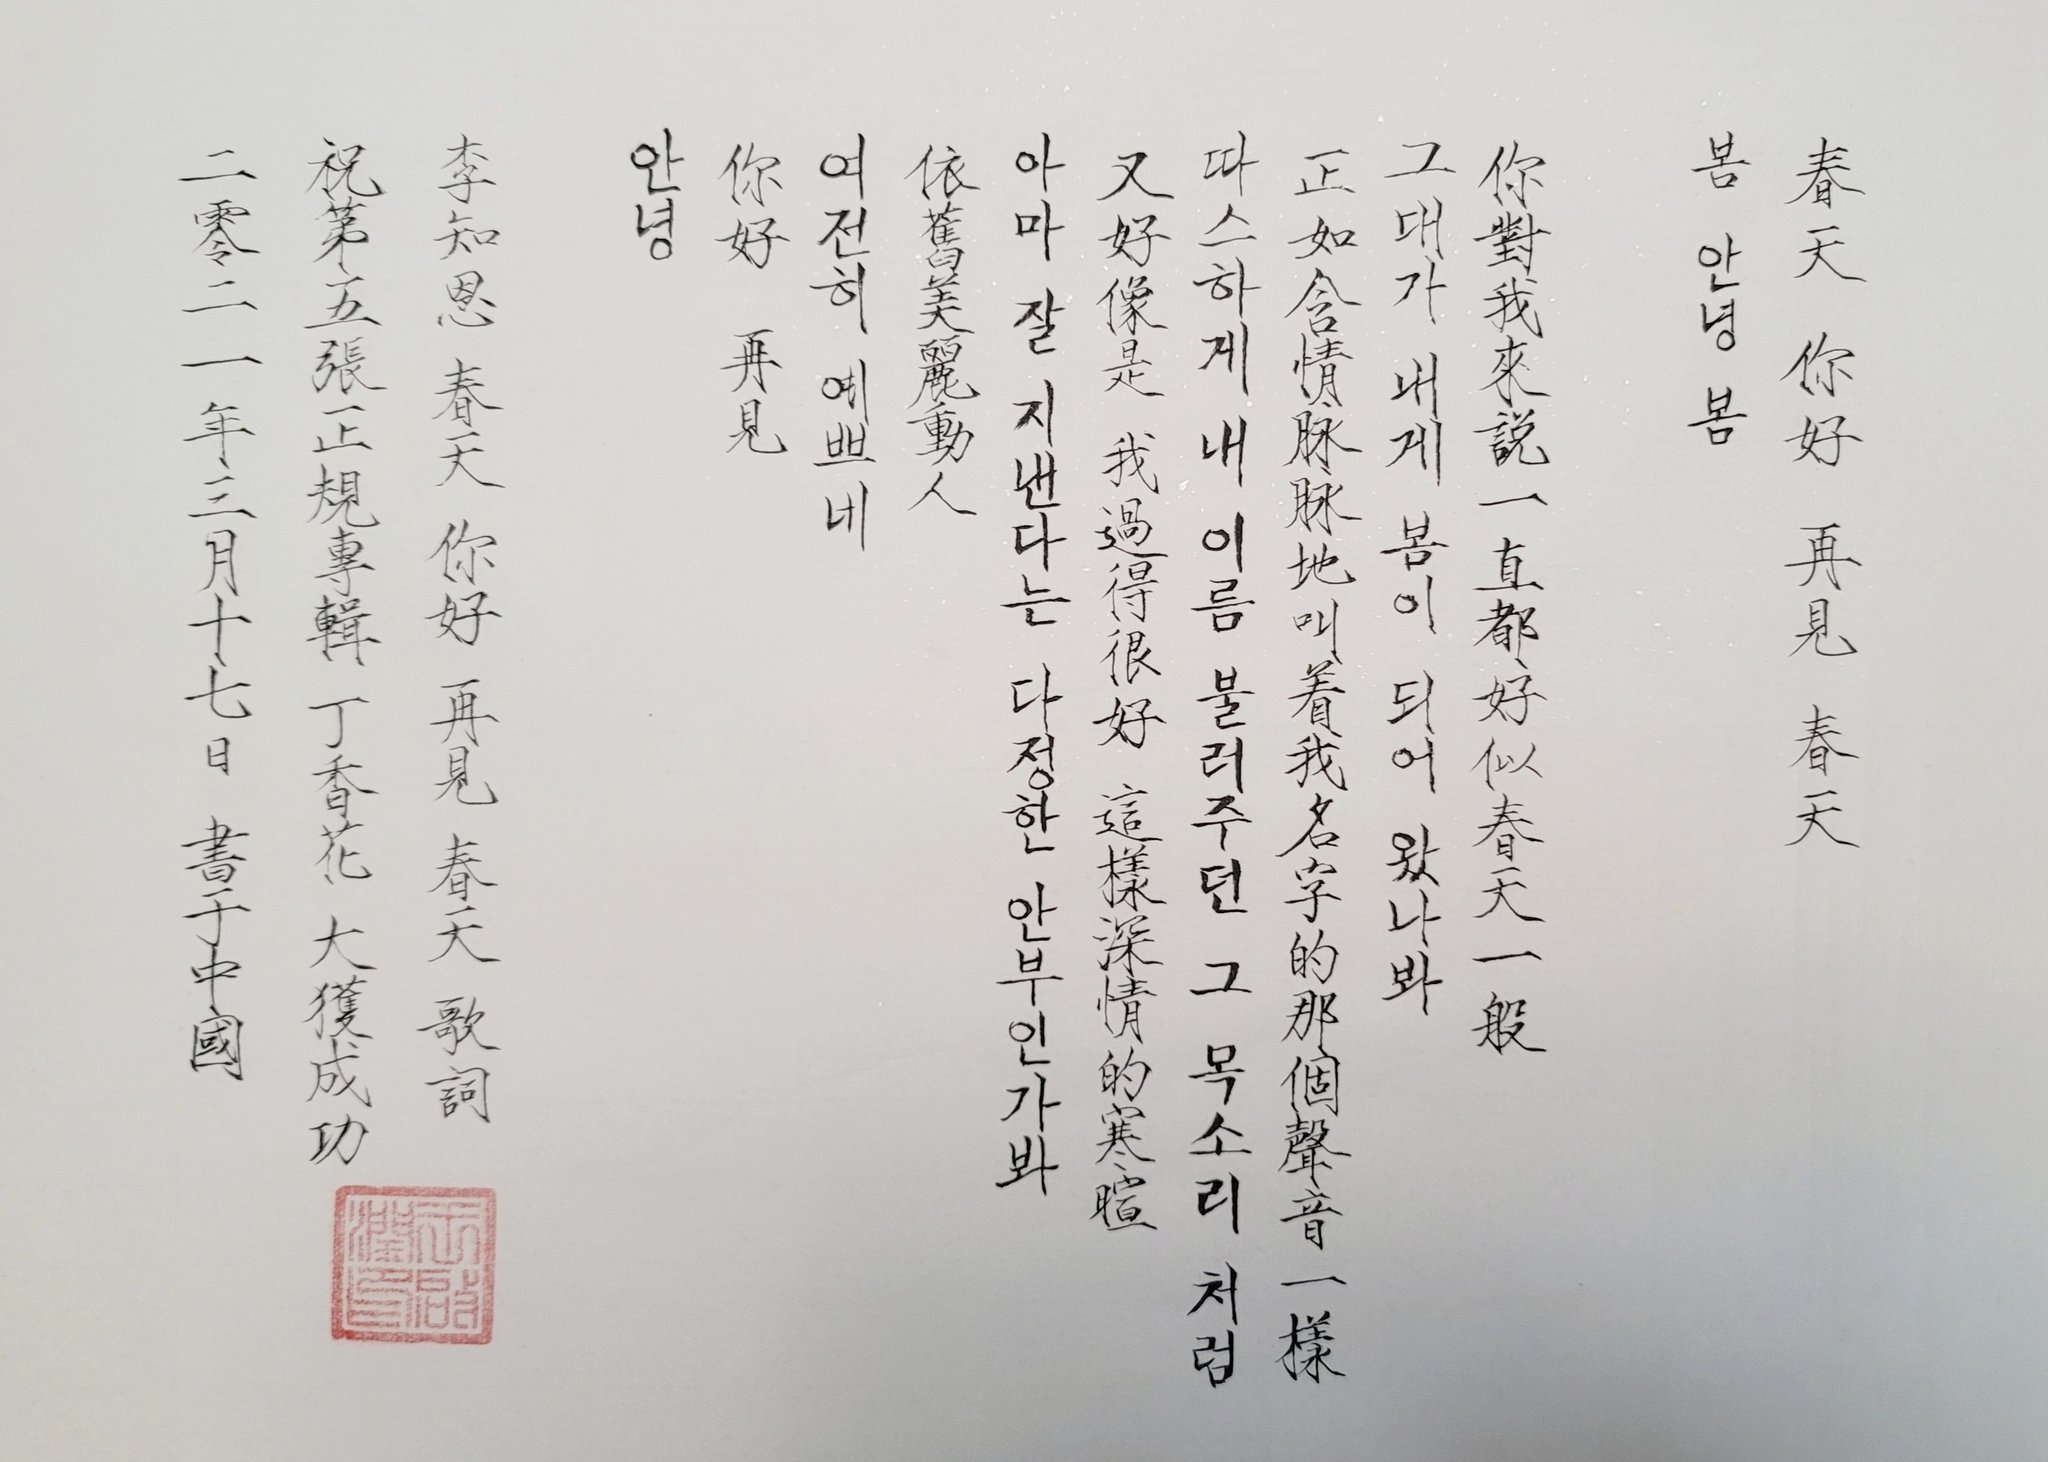 春天 你好 再見 春天
봄 안녕 봄
你對我來説一直都好似春天一般
그대가 내게 봄이 되어 왔나봐
正如含情脉脉地叫着我名字的那個聲音一樣
따스하게 내 이름 불러주던 그 목소리 처럼
又好像是 我過得很好 這樣深情的寒暄
아마 잘 지낸다는 다정한 안부인가봐
依舊美麗動人
여전히 예쁘네
你好 再見
안녕
李知恩 春天 你好 再見 春天 歌詞
祝第五張正規專輯 丁香花 大獲成功
二零二一年三月十七日 書于中國